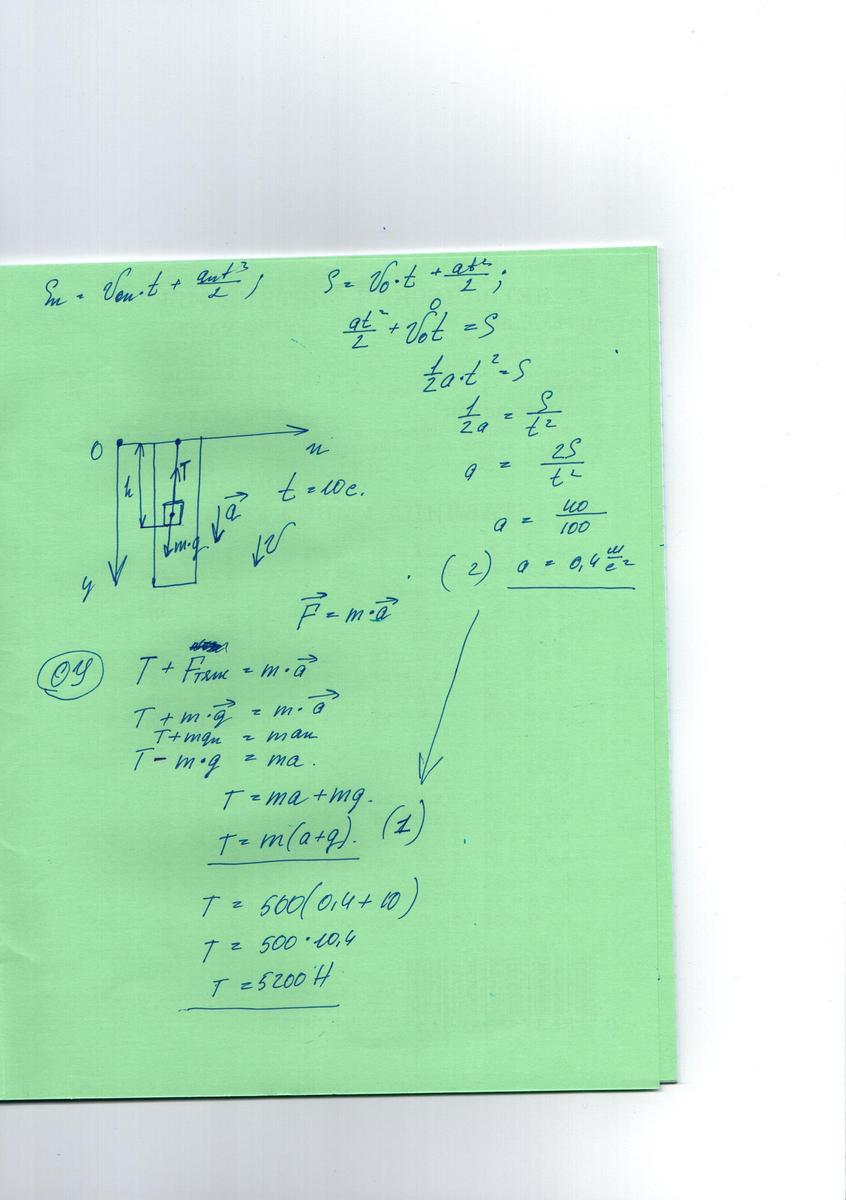 Sₙ = V₀ₙ·t + aₙt³/2 ; S = V₀·t + at²/2 ;
at²/2 + V₀t = S
0
1/2a·t² = S
1/2a = S/t²
a = 2S/t²
a = 40/100
(2) a = 0,4 м/с²
O
n
h
T
m·g
a
V
y
t = 10с.
F = m·a
OY
T + Fтяж = m·a
T + m·g = m·a
T + mgn = man
T - m·g = ma.
T = ma + mg.
T = m(a+g). (1)
T = 500(0,4 + 10)
T = 500·10,4
T = 5200 Н